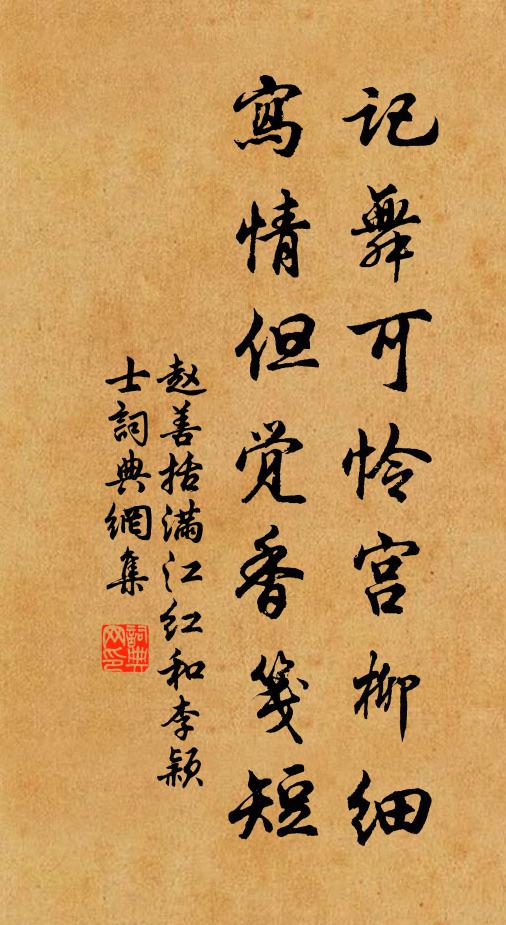 记舞可怜宫柳细
寫情但觉香笺短
赵善括满江红和李颖
士詞典網集
詞典网印